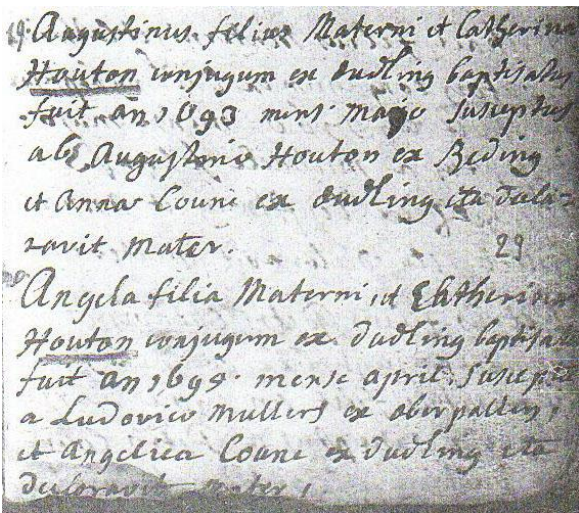 19 Augustinus filius Materni et Catherina
Houton conjugum ex dudling baptisatus
fuit an 1693 mens majo susceptus
ab Augustino Houton ex Beding
et Anna Coune ex dudling ita dula=
ravit mater.
29
Angela filia Materni, et Catherina
Houton conjugum ex dudling baptisata
fuit an 169 mense april. suscepta
a Ludovico Mullers ex oberpallen,
et Angelica Coune ex dudling ita
dularavit mater,